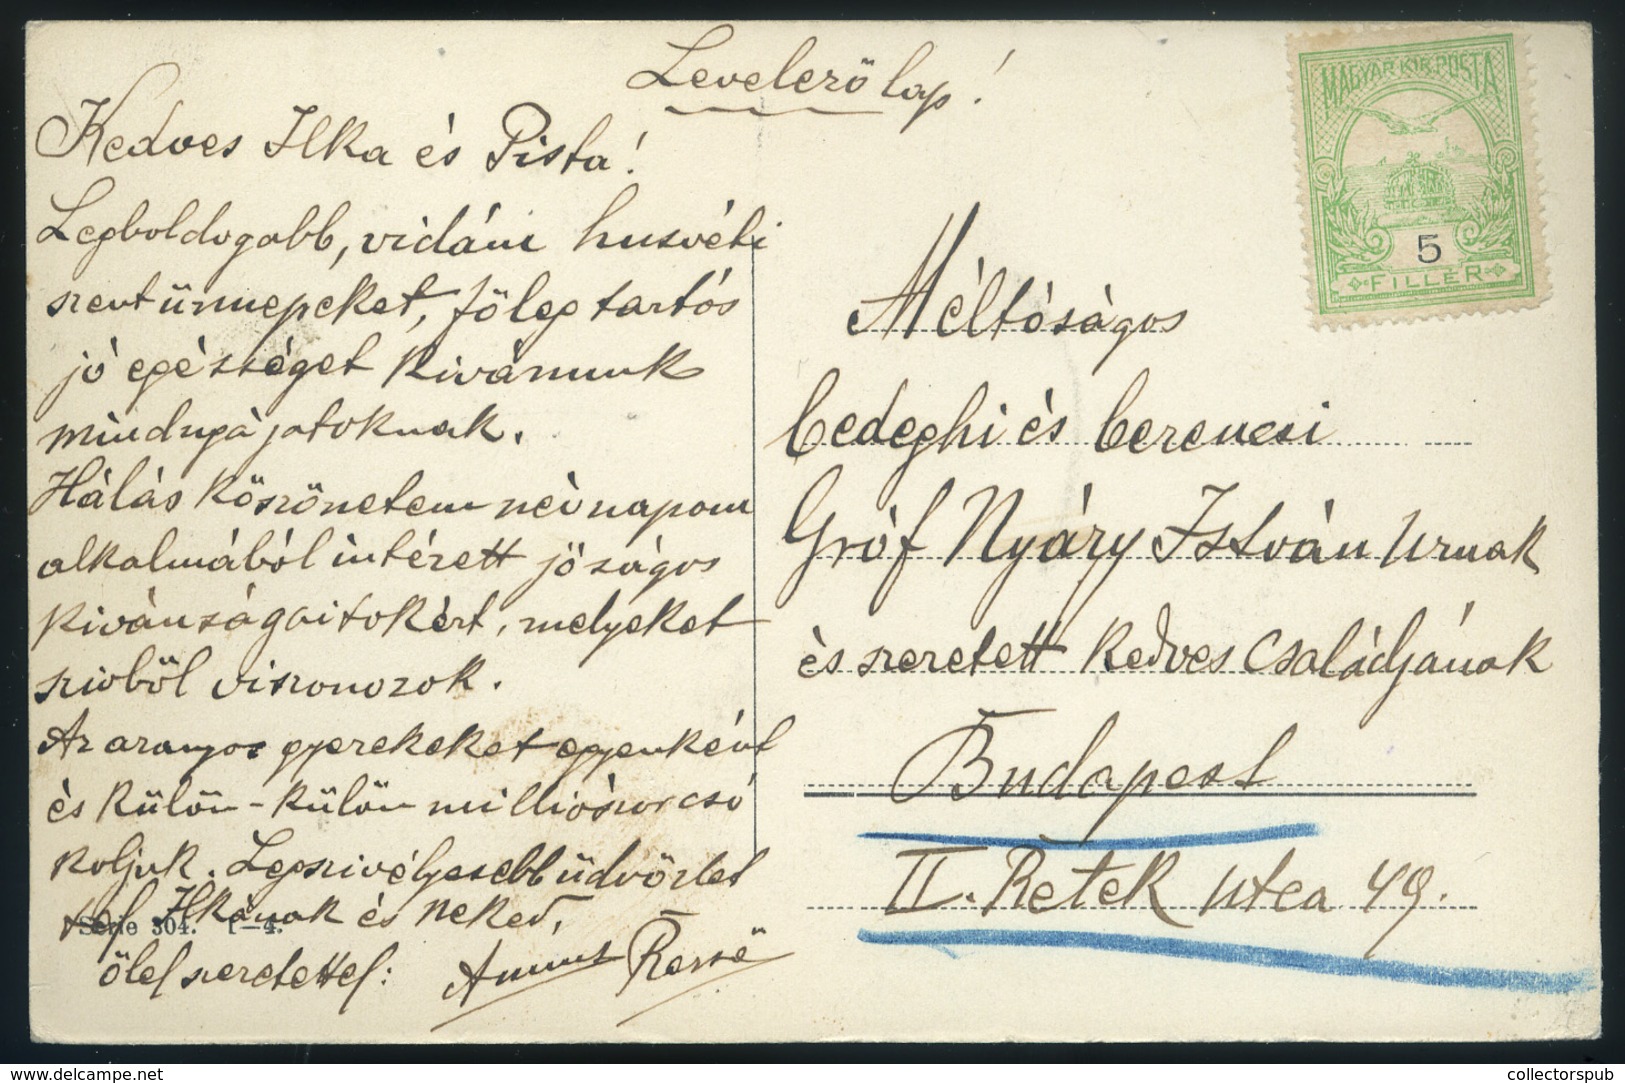 Levelező lap!
MAGYAR KIR. POSTA
5
FILLÉR
Kedves Ilka és Pista!
Legboldogabb, vidám husvéti
szent ünnepeket, főleg tartós
jó egésséget kivánunk
mindnyájatoknak.
Hálás köszönetem névnapom
alkalmából intézett jóságos
kivánságaitokért, melyeket
szivből viszonozok.
Az aranyos gyerekeket egyenként
és külön-külön milliószor csó
koljuk. Legszivélyesebb üdvözlet
Ilkának és neked,
Serie 304. 1-4.
ölel szeretettel:
Méltóságos
bedeghi és berencsi
Gróf Nyáry István Urnak
és szeretett kedves Családjának
Budapest
II. Retek utca 49.
collectorspub
www.delcampe.net